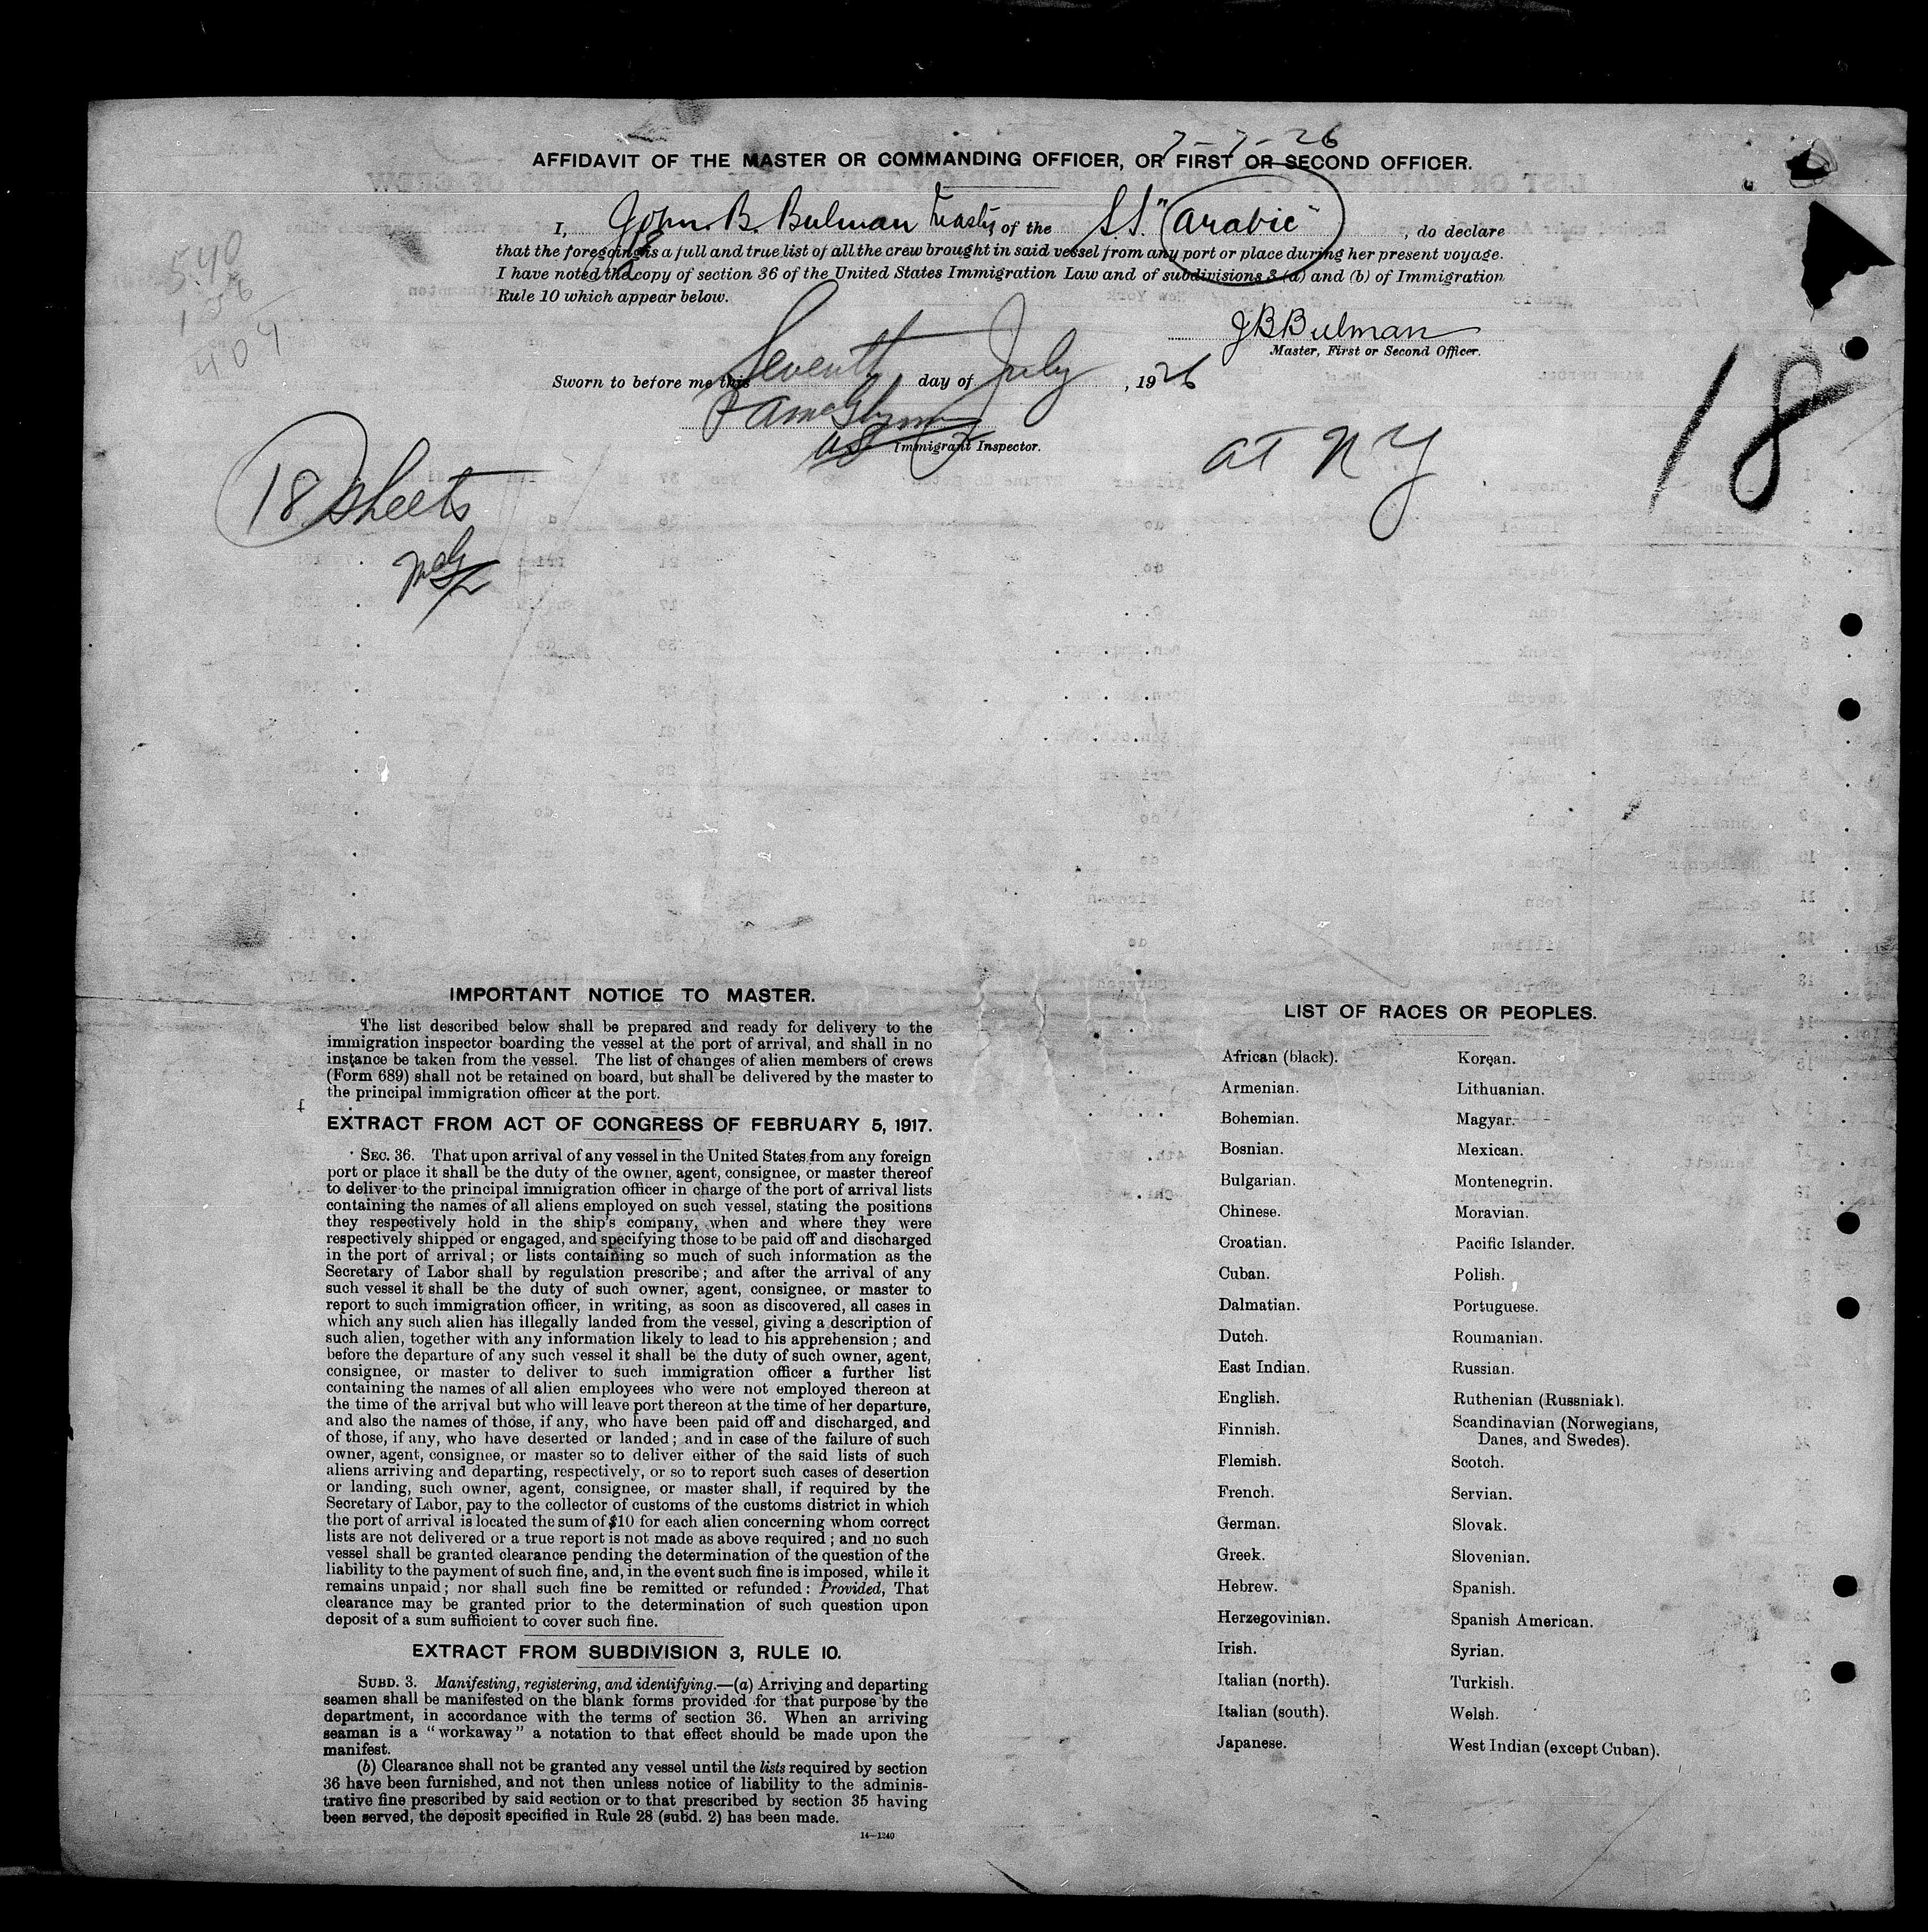 7-7-26
AFFIDAVIT OF THE MASTER OR COMMANDING OFFICER, OR FIRST OR SECOND OFFICER.
I, John. B. Bulman Master of the S.S. "Arabic" , do declare
that the foregoing is a full and true list of all the crew brought in said vessel from any port or place during her present voyage.
I have noted the copy of section 36 of the United States Immigration Law and of subdivisions 3 (a) and (b) of Immigration
Rule 10 which appear below.
540
136
404
JBBulman
Master, First or Second Officer.
Sworn to before me this Seventh day of July , 1926
US Immigrant Inspector.
at NY
18
18 sheets
IMPORTANT NOTICE TO MASTER.
The list described below shall be prepared and ready for delivery to the
immigration inspector boarding the vessel at the port of arrival, and shall in no
instance be taken from the vessel. The list of changes of alien members of crews
(Form 689) shall not be retained on board, but shall be delivered by the master to
the principal immigration officer at the port.
EXTRACT FROM ACT OF CONGRESS OF FEBRUARY 5, 1917.
SEC. 36. That upon arrival of any vessel in the United States from any foreign
port or place it shall be the duty of the owner, agent, consignee, or master thereof
to deliver to the principal immigration officer in charge of the port of arrival lists
containing the names of all aliens employed on such vessel, stating the positions
they respectively hold in the ship's company, when and where they were
respectively shipped or engaged, and specifying those to be paid off and discharged
in the port of arrival; or lists containing so much of such information as the
Secretary of Labor shall by regulation prescribe; and after the arrival of any
such vessel it shall be the duty of such owner, agent, consignee, or master to
report to such immigration officer, in writing, as soon as discovered, all cases in
which any such alien has illegally landed from the vessel, giving a description of
such alien, together with any information likely to lead to his apprehension; and
before the departure of any such vessel it shall be the duty of such owner, agent,
consignee, or master to deliver to such immigration officer a further list
containing the names of all alien employees who were not employed thereon at
the time of the arrival but who will leave port thereon at the time of her departure,
and also the names of those, if any, who have been paid off and discharged, and
of those, if any, who have deserted or landed; and in case of the failure of such
owner, agent, consignee, or master so to deliver either of the said lists of such
aliens arriving and departing, respectively, or so to report such cases of desertion
or landing, such owner, agent, consignee, or master shall, if required by the
Secretary of Labor, pay to the collector of customs of the customs district in which
the port of arrival is located the sum of $10 for each alien concerning whom correct
lists are not delivered or a true report is not made as above required; and no such
vessel shall be granted clearance pending the determination of the question of the
liability to the payment of such fine, and, in the event such fine is imposed, while it
remains unpaid; nor shall such fine be remitted or refunded: Provided, That
clearance may be granted prior to the determination of such question upon
deposit of a sum sufficient to cover such fine.
EXTRACT FROM SUBDIVISION 3, RULE 10.
SUBD. 3. Manifesting, registering, and identifying.—(a) Arriving and departing
seamen shall be manifested on the blank forms provided for that purpose by the
department, in accordance with the terms of section 36. When an arriving
seaman is a "workaway" a notation to that effect should be made upon the
manifest.
(b) Clearance shall not be granted any vessel until the lists required by section
36 have been furnished, and not then unless notice of liability to the adminis-
trative fine prescribed by said section or to that prescribed by section 35 having
been served, the deposit specified in Rule 28 (subd. 2) has been made.
14—1240
LIST OF RACES OR PEOPLES.
African (black).
Armenian.
Bohemian.
Bosnian.
Bulgarian.
Chinese.
Croatian.
Cuban.
Dalmatian.
Dutch.
East Indian.
English.
Finnish.
Flemish.
French.
German.
Greek.
Hebrew.
Herzegovinian.
Irish.
Italian (north).
Italian (south).
Japanese.
Korean.
Lithuanian.
Magyar.
Mexican.
Montenegrin.
Moravian.
Pacific Islander.
Polish.
Portuguese.
Roumanian.
Russian.
Ruthenian (Russniak).
Scandinavian (Norwegians,
Danes, and Swedes).
Scotch.
Servian.
Slovak.
Slovenian.
Spanish.
Spanish American.
Syrian.
Turkish.
Welsh.
West Indian (except Cuban).